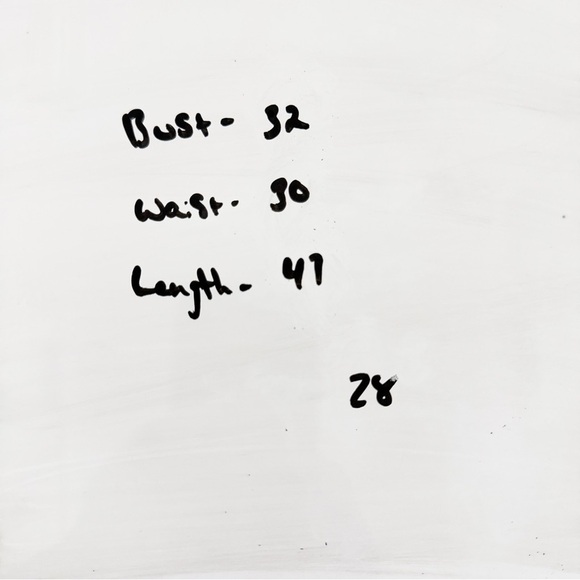 Bust - 32
Waist - 30
Length - 47
28